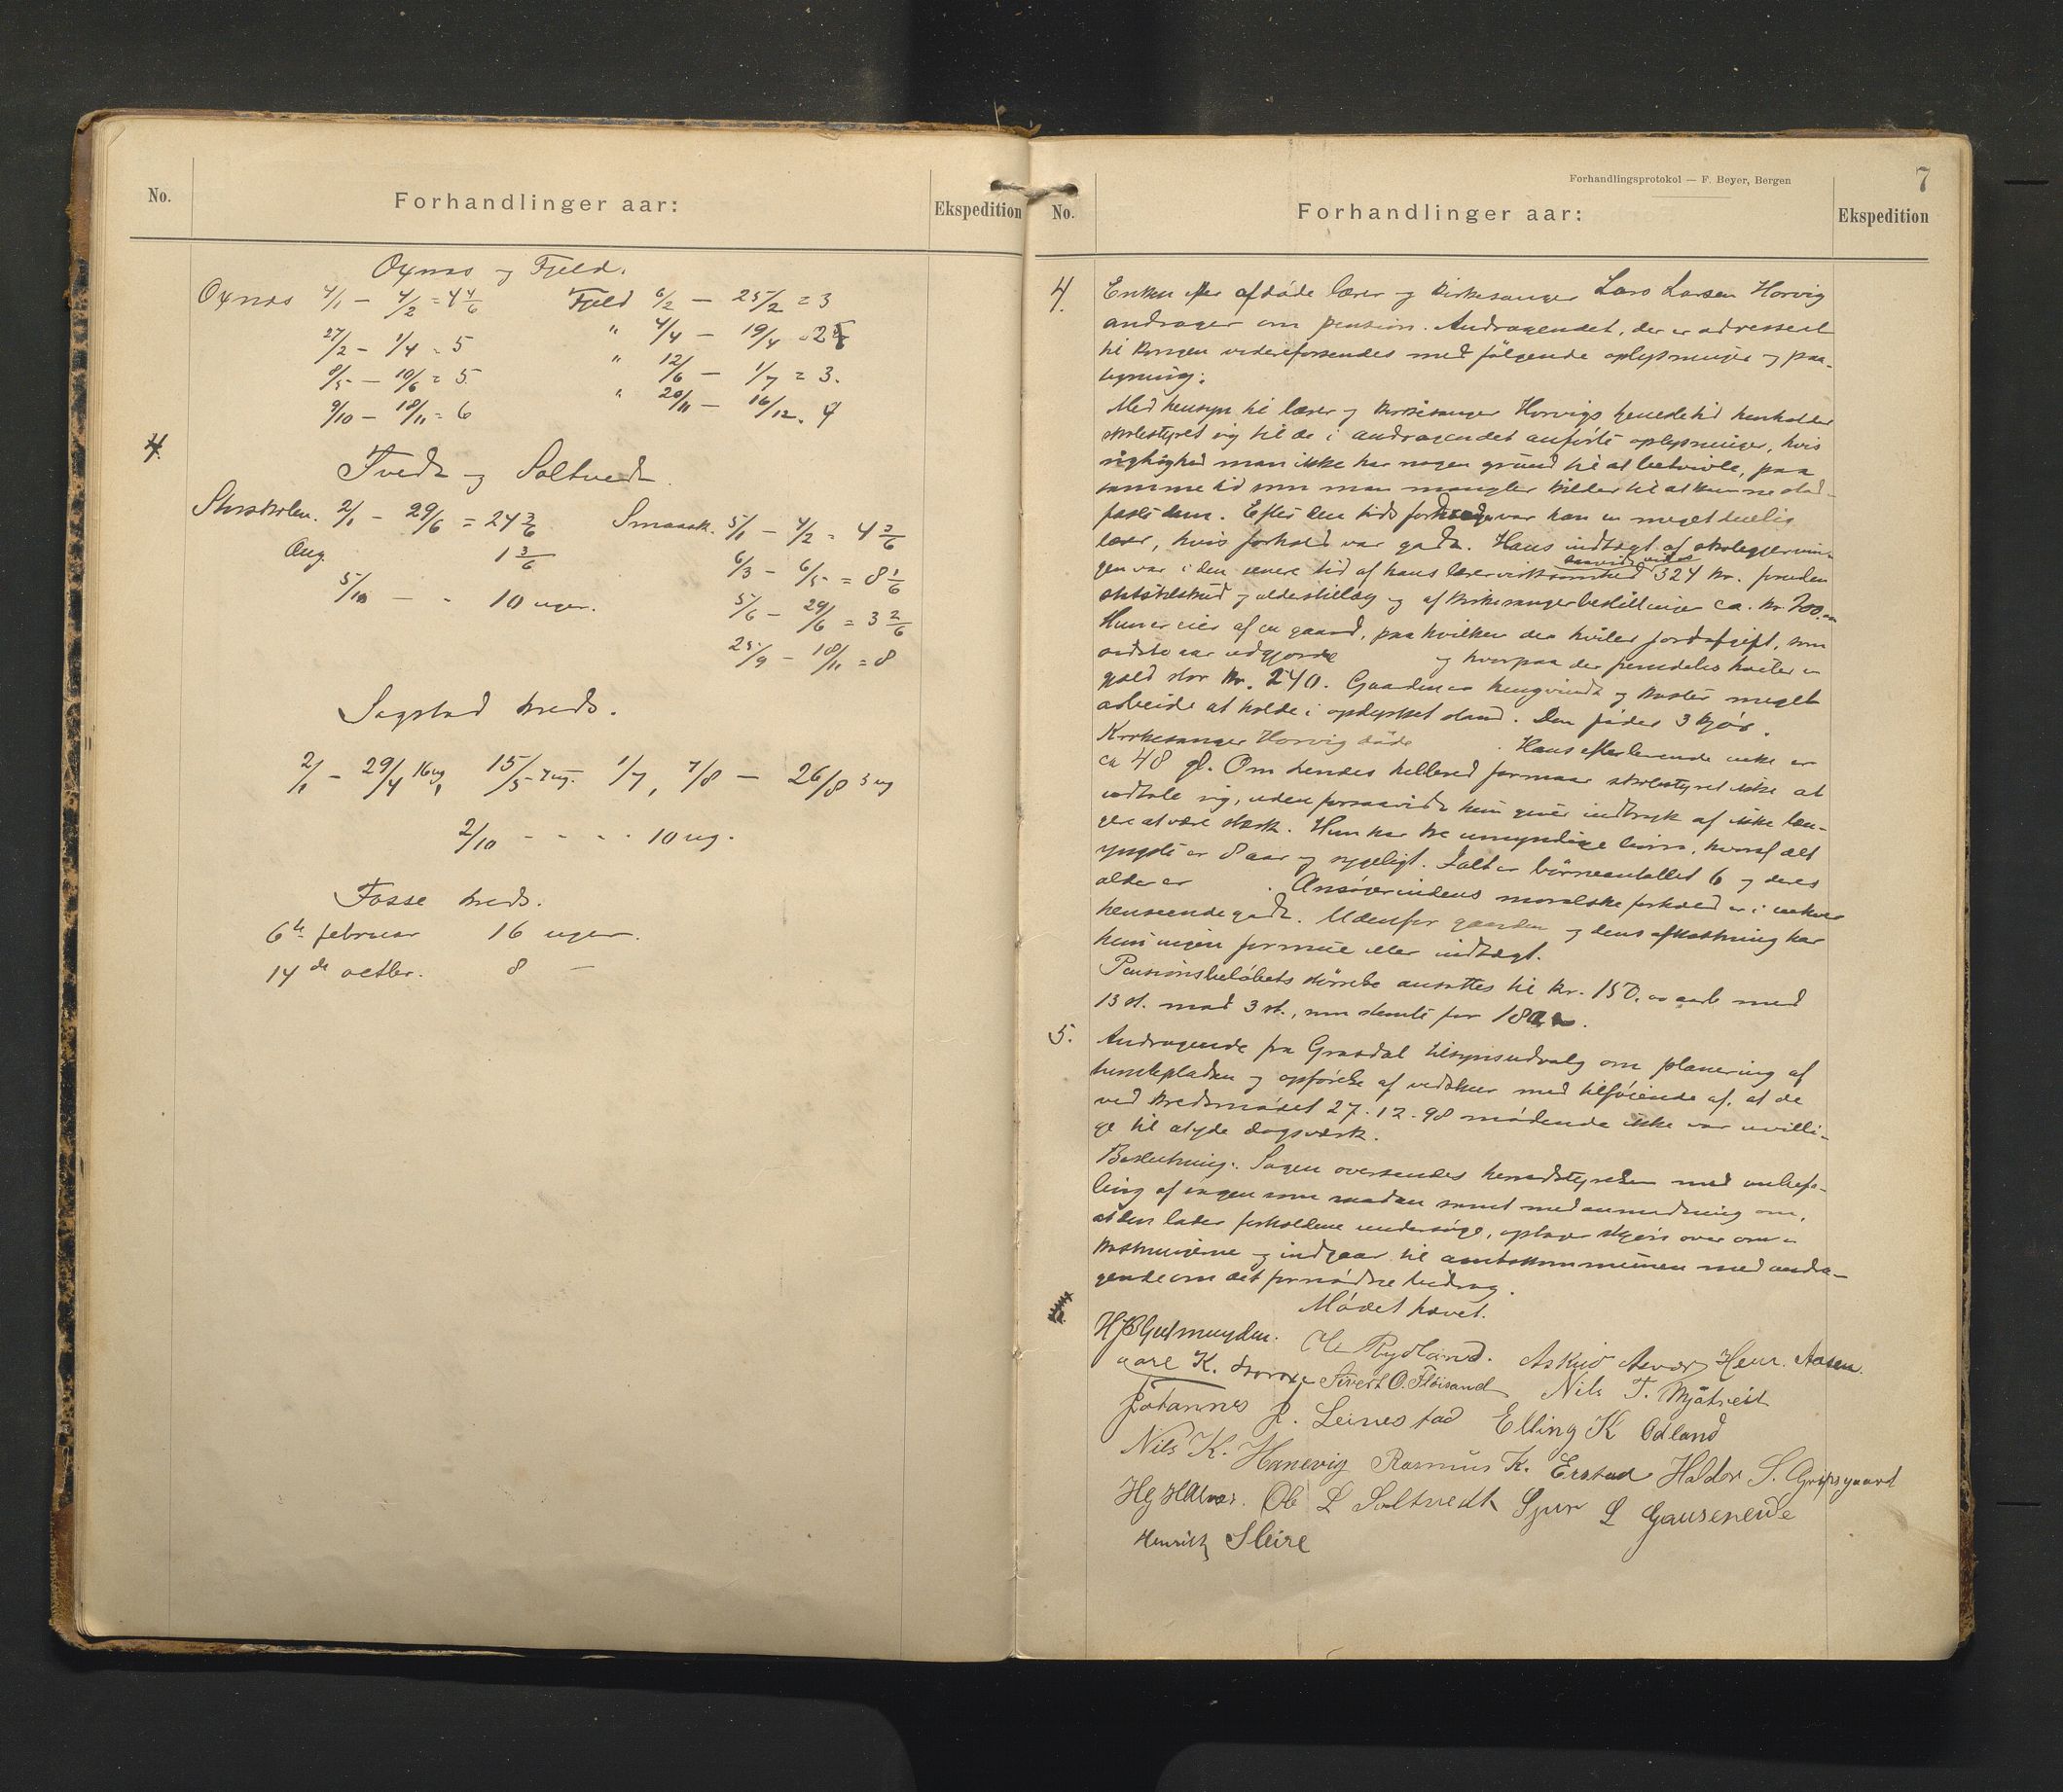 No.
Forhandlinger aar:
Ekspedition
Oxnæs og Fjeld.
Oxnæs 4/1 – 4/2 = 4 4/6 Fjeld 6/2 – 25/2 = 3
27/2 – 1/4 = 5 " 4/4 – 19/4
8/5 – 10/6 = 5 " 12/6 – 1/7 = 3.
9/10 – 18/11 = 6 " 20/11 – 16/12 . 4
4.
Tvedt og Soltvedt.
Storskolen. 2/1 – 29/6 = 24 3/6 Smaask. 5/1 – 4/2 = 4 3/6
Aug. 1 3/6 6/3 – 6/5 = 8 1/6
5/10 – - 10 uger. 5/6 – 29/6 = 3 2/6
25/9 – 18/11 = 8
Sagstad kreds.
2/1 – 29/4 16 ug, 15/5 7 ug. 1/7, 7/8 – 26/8 3 ug
2/10 - - - - 10 ug.
Fosse kreds.
6te februar 16 uger.
14de octbr. 8 –
Forhandlingsprotokol — F. Beyer, Bergen
7
No.
Forhandlinger aar:
Ekspedition
4. Enken efter afdøde lærer og kirkesanger Lars Larsen Horvig
andrager om pension. Andragendet, der er adresseret
til Kongen videreforsendes med følgende oplysninger og paa-
tegning:
Med hensyn til lærer og kirkesanger Horvigs tjenestetid henholder
skolestyret sig til de i andragendet anførte oplysninger, hvis
rigtighed man ikke har nogen grund til at betvivle, paa
samme tid som man mangler kilder til at kunne stad-
fæste dem. Efter den tids var han en meget duelig
lærer, hvis forhold var godt. Hans indtægt af skolegjernin-
gen var i den senere tid af hans lærervirksomhed 324 kr. foruden
statstilskud og alderstillæg og af kirkesangerbestillingen ca. kr. 200.00
Hun er eier af en gaard, paa hvilken der hviler jordafgift, som
sidste aar udgjorde og hvorpaa der fremdeles hviler en
gjæld stor kr. 240. Gaarden er tungvindt og koster meget
arbeide at holde i opdyrket stand. Den føder 3 kjør.
Kirkesanger Horvig døde . Hans efterlevende enke er
ca 48 gl. Om hendes helbred formaar skolestyret ikke at
udtale sig, uden forsaavidt hun giver indtryk af ikke læn-
gere at være stærk. Hun har tre umyndige børn, hvoraf det
yngste er 8 aar og sygeligt. Ialt er børneantallet 6 og deres
alder er . Ansøgerindens moralske forhold er i enhver
henseende godt. Udenfor gaarden og dens afkastning har
hun ingen formue eller indtægt.
Pensionsbeløbets størrelse ansattes til kr. 150.00 aarl. med
13 st. mod 3 st., som stemte for 180.
5. Andragende fra Graadal tilsynsudvalg om planering af
tumlepladsen og opførelse af vedskur med tilføiende af, at de
ved kredsmødet 27-12-98 mødende ikke var uvilli-
ge til at yde dagsværk.
Beslutning: Sagen oversendes herredstyrelsen med anbefa-
ling af sagen som saadan samt med anmodning om,
at den lader forholdene undersøge, optage skjøn over om-
kostningerne og indgaar til amtskommunen med andra-
gende om det fornødne bidrag.
Mødet hævet.
H. B. Gutmuyden. Ole Rydland. Askild Henr. Aasen.
K. Sivert O. Fløisand Nils T. Mjåtveit
Johannes J. Leinestad Elling K Odland
Nils K. Hanevig Rasmus K. Erstad Haldor S. Gripsgaard
Ole L Soltvedt Sjur L Gausereide
Henrik Sleire